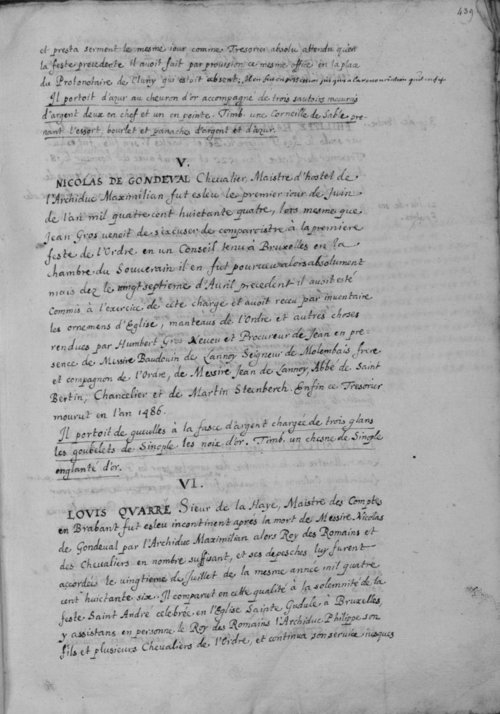 439
et presta serment le mesme iour comme Tresorier absolu attendu qu'en
la feste precedente il avoit fait par provision ce mesme office en la place
du Protonotaire de Cluny qui estoit absent;
Il portoit d'azur au chevron d'or accompagné de trois sautoirs
d'argent deux en chef et un en pointe. Timb. une Corneille de Sable pre-
nant l'essort, bourlet et panaches d'argent et d'azur.
V.
NICOLAS DE GONDEVAL Chevalier, Maistre d'hostel de
l'Archiduc Maximilian fut esleu le premier iour de Juin
de l'an mil quatre cent huictante quatre, lors mesme que
Jean Gros venoit de s'excuser de comparoistre à la premiere
feste de l'Ordre en un Conseil tenu à Bruxelles en la
chambre du Souverain il en fut pourueu alors absolument
mais dez le vingtseptieme d'Avril precedent il avoit esté
Commis à l'exercice de cete charge et avoit receu par inventaire
les ornemens d'Eglise, manteaus de l'Ordre et autres choses
rendues par Humbert Gros Neveu et Procureur de Jean en pre-
sence de Messire Baudouin de Lannoy Seigneur de Molembais frere
et compagnon de l'Ordre, de Messire Jean de Lannoy Abbé de Saint
Bertin, Chancelier et de Martin Steenberch. Enfin ce Tresorier
mourut en l'an 1486.
Il portoit de gueulles à la fasce d'argent chargée de trois glans
les goubelets de Sinople les noix d'or. Timb. un chesne de Sinople
englanté d'or.
VI.
LOUIS QVARRE Sieur de la Haye, Maistre des Comptes
en Brabant fut esleu incontinent après la mort de Messire Nicolas
de Gondeval par l'Archiduc Maximilian alors Roy des Romains et
des Chevaliers en nombre suffisant, et ses depesches luy furent
accordeis le vingtieme de Juillet de la mesme année mil quatre
cent huictante six. Il comparut en cette qualité à la solemnité de la
feste Saint André celebrée en l'Eglise Sainte Gudule à Bruxelles
y assistans en personne le Roy des Romains l'Archiduc Philippe son
fils et plusieurs Chevaliers de l'Ordre, et continua son service iusques